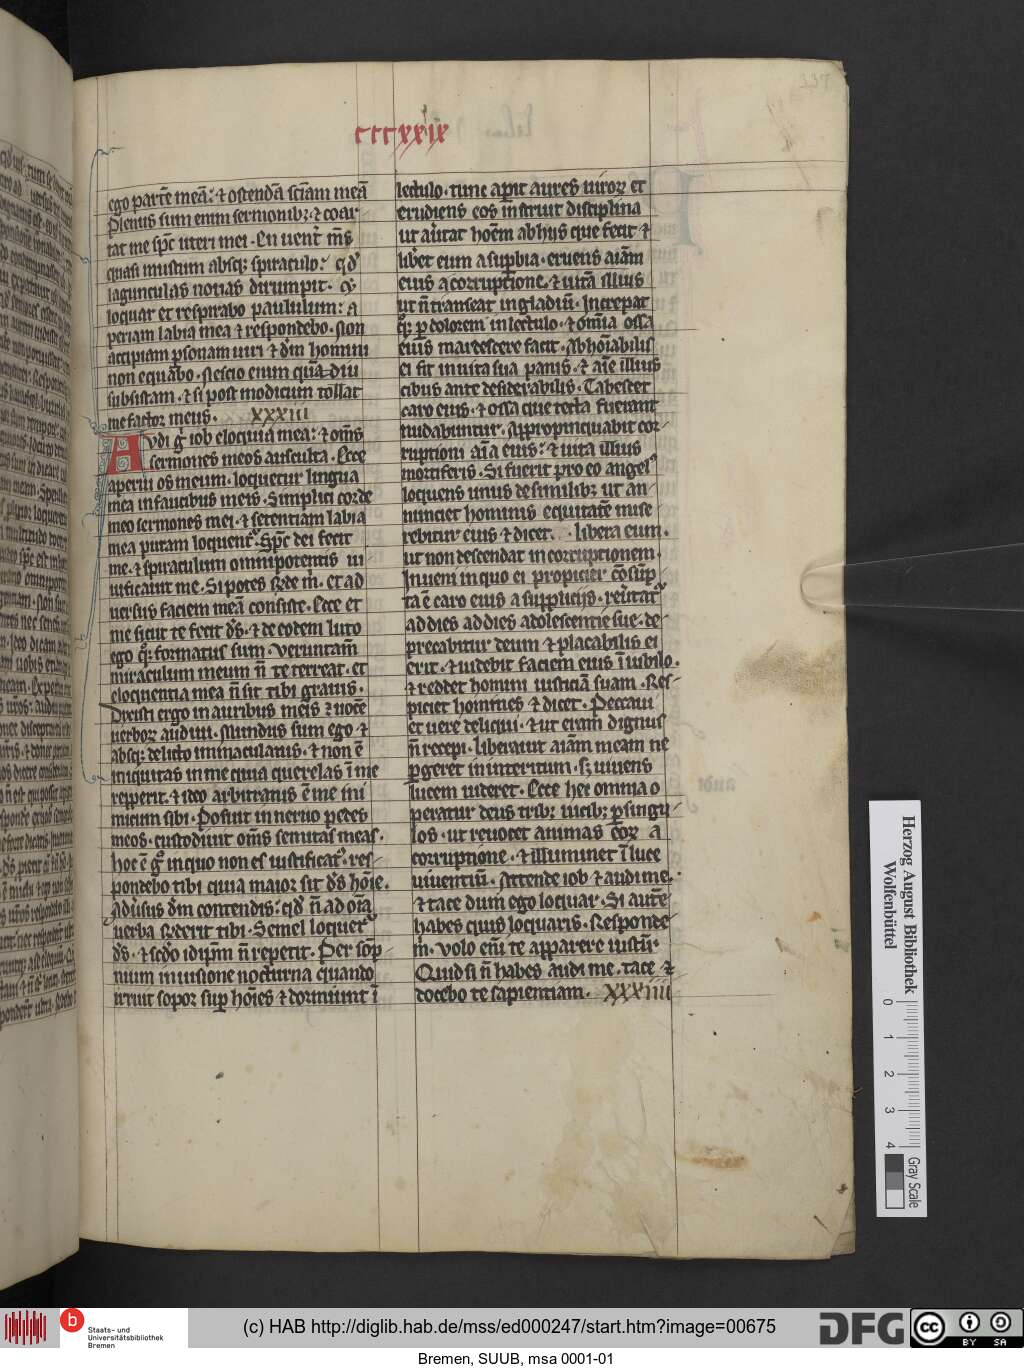 cccxxix
337
ego parte̅ mea̅: ⁊ ostenda̅ scia̅m mea̅
Plenus sum enim sermonib; ⁊ coar
tat me sp̅c uteri mei. En uent̅ m̅s
quasi mustum absq; spiraculo: qd̛
lagunculas nouas dirumpit.
loquar et respirabo paululum: a
periam labia mea ⁊ respondebo. Non
accipiam p̲sonam uiri ⁊ d̅m homini
non equabo. Nescio enim qua̅diu
subsistam. ⁊ si post modicum tollat
me factor meus. XXXIII
Audi g̛ iob eloquia mea: ⁊ om̅s
sermones meos ausculta. Ecce
aperui os meum. loquetur lingua
mea in faucibus meis. Simplici corde
meo sermones mei. ⁊ sete̅tiam labia
mea puram loquent̛. Sp̅c dei fecit
me. ⁊ spiraculum omnipotentis ui
uificauit me. Si potes r̅de m̛. et ad
uersus faciem mea̅ consiste. Ecce et
me sicut te fecit d̅s. ⁊ de eodem luto
ego q̛; formatus sum. Veruntam̅
miraculum meum n̅ te terreat. et
eloquentia mea n̅ sit tibi grauis.
Dixisti ergo in auribus meis ⁊ uoce̅
uerboꝝ audiui. Mundus sum ego ⁊
absq; delicto immaculatus. ⁊ non e̅
iniquitas in me quia querelas i̅ me
repperit. ⁊ ideo arbitratus e̅ me ini
micum sibi. Posuit in neruo pedes
meos. custodiuit om̅s semitas meas.
hoc e̅ g̛ in quo non es iustificat̛. res-
pondebo tibi quia maior sit d̅s ho̅ie.
Adưsus d̅m contendis: qd̛ n̅ ad o̅ia
uerba r̅derit tibi. Semel loquet̛
d̅s. ⁊ sc̅do idip̅m n̅ repetit. Per so̅p-
nium in uisione nocturna quando
irruit sopor sup̲ ho̅ies ⁊ dormiunt i̅
lectulo. tunc ap̲it aures uiroꝝ et
erudiens eos instruit disciplina
ut aưtat ho̅em ab hijs que fecit ⁊
lib̛et eum a sup̲bia. eruens aia̅m
eius a corruptione. ⁊ uita̅ illius
ut n̅ transeat in gladiu̅. Increpat
q̛; p̲ dolorem in lectulo. ⁊ om̅ia ossa
eius marcescere facit. Abho̅iabilis
ei fit in uita sua panis. ⁊ ai̅e illius
cibus ante desiderabilis. Tabescet
caro eius. ⁊ ossa que tecta fuerant
nudabuntur. Appropinquabit cor-
ruptioni ai̅a eius: ⁊ uita illius
mortiferis. Si fuerit pro eo angel̛
loquens unus de similib; ut an-
nunciet hominis equitate̅ mise
rebitur eius ⁊ dicet. libera eum.
ut non descendat in corruptionem.
Inueni in quo ei propicier co̅su̅p-
ta e̅ caro eius a supplicijs. reưtat̛
ad dies ad dies adolescentie sue. de-
precabitur deum ⁊ placabilis ei
erit. ⁊ uidebit faciem eius i̅ iubilo.
⁊ reddet homini iusticia̅ suam. Res-
piciet homines ⁊ dicet. Peccaui
et uere deliqui. ⁊ ut eram dignus
n̅ recepi. liberauit aia̅m meam ne
p̲geret in interitum. s; uiuens
lucem uideret. Ecce hec omnia o
peratur deus trib; uicib; p̲ singu-
los. ut reuocet animas eoꝝ a
corruptione. ⁊ illuminet i̅ luce
uiuentiu̅. Attende iob ⁊ audi me.
⁊ tace dum ego loquar. Si aute̅
habes quid loquaris. Responde
m̛. uolo eni̅ te apparere iustu̅.
Quid si n̅ habes audi me. tace ⁊
docebo te sapientiam. XXXIIII
Herzog August Bibliothek
Wolfenbüttel
0 1 2 3 4
Gray Scale
b Staats- und
Universitätsbibliothek
Bremen
(c) HAB http://diglib.hab.de/mss/ed000247/start.htm?image=00675
DFG
cc BY SA
Bremen, SUUB, msa 0001-01